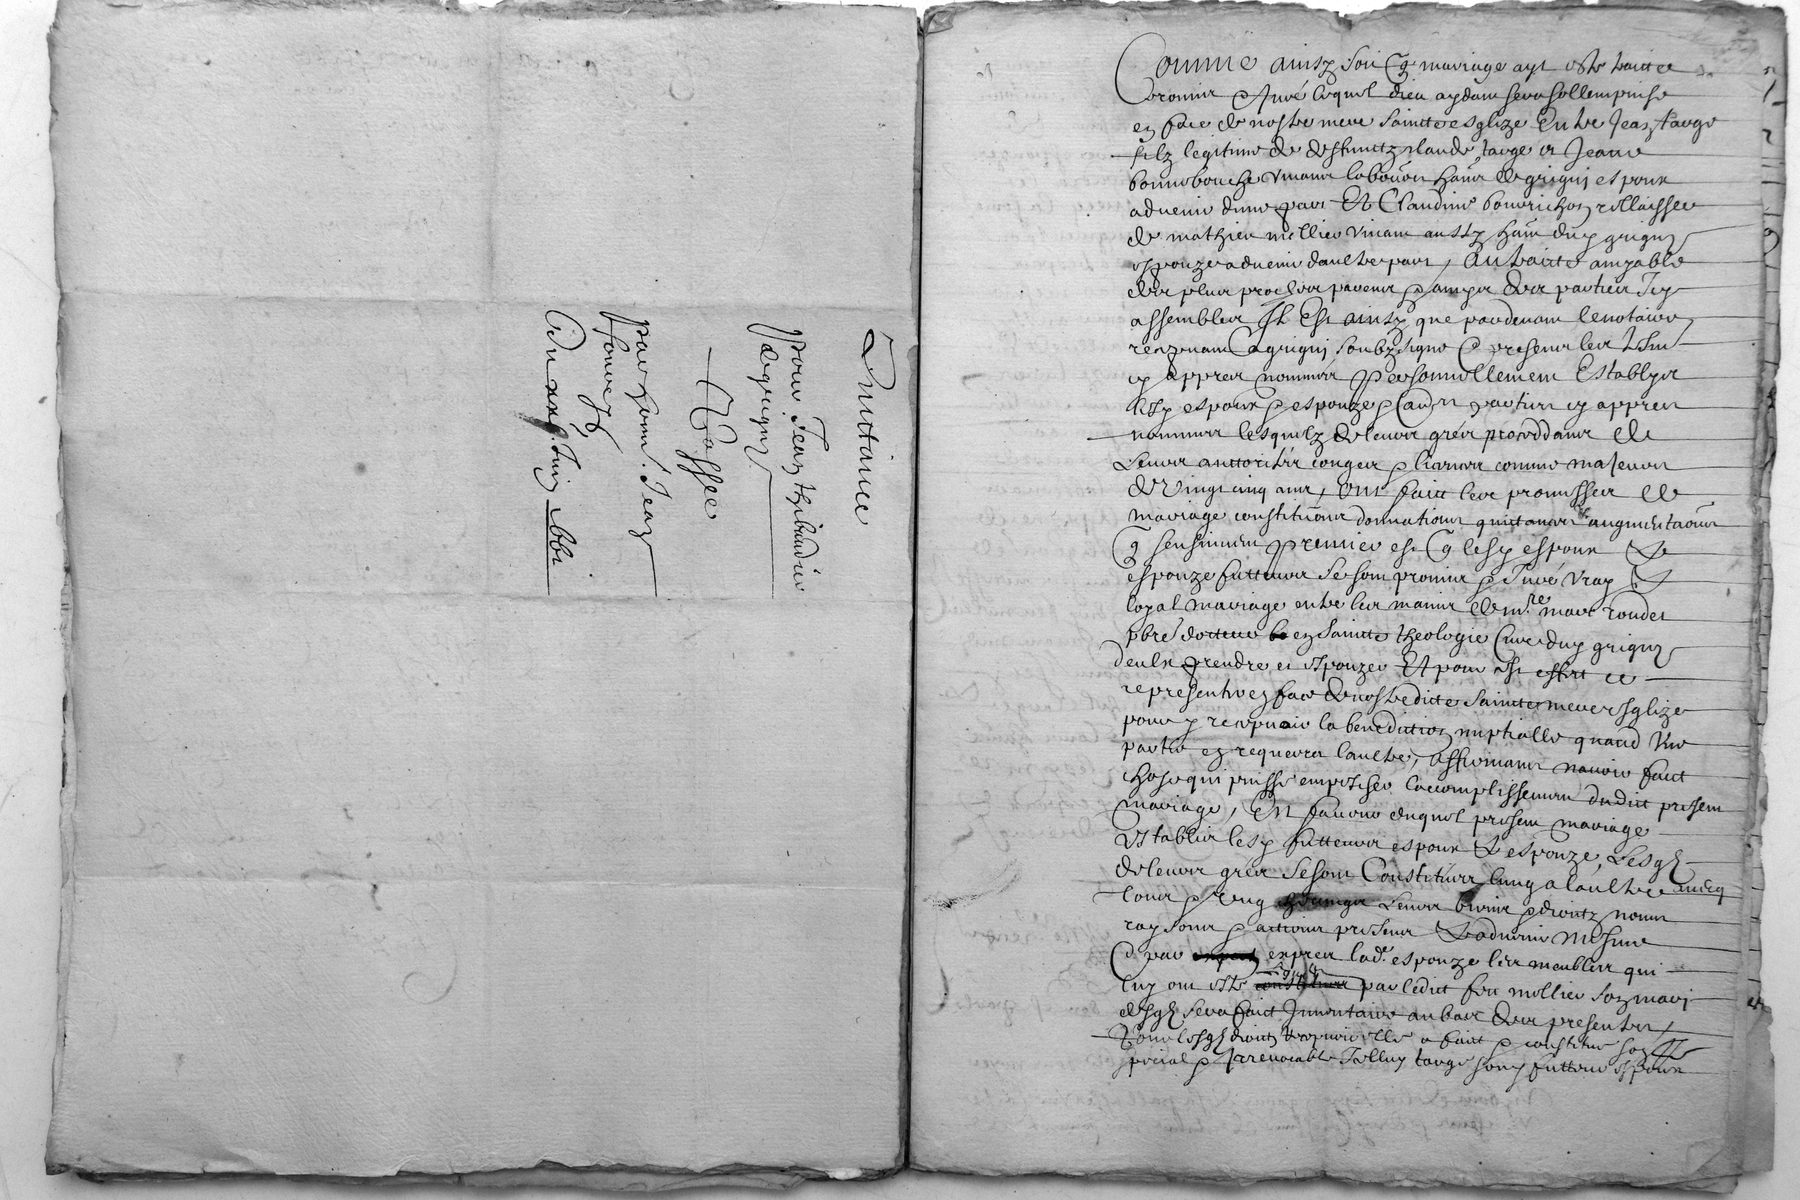 Quittance
pour Jean thibaudier
de grigny
Passee
par honn. Jean
fourez
Du xxx. Juin 1661
Comme ainsy soit q mariage ayt esté traicté
promis et juré lequel dieu aydant sera sollempnisé
en face de nostre mere saincte esglize Entre Jean targe
filz legitime de deffunctz claude targe et Jeanne
bonnebouche vivant laboureur hânt de grigni espoux
advenir dune part Et Claudine relaissee
de mathieu mellier vivant aussy hânt dud grigny
espouze advenir daultre part, Au traicté amyable
des plus proches parens et amys des parties Icy
assemblez Il Est ainsy que pardevant le notaire
recepvant a grigni soubzsigné et presens les tesm
cy appres nommez Personnellement Establys
lesd espoux et espouze cy appres
nommez lesquelz de leurs gréz proceddans de
leurs auctoritéz congez et licences comme majeurs
de vingt cinq ans, Ont faict les promesses de
mariage constitutions donnations quictances et augmentaôns
q sensuivent Premier est q lesd espoux &
espouze futteurs se sont promis et juré vray &
loyal mariage entre les mains de m.re marc
pbre docteur en saincte theologie Curé dud grigny
deulx prendre et espouzer Et pour cest effect ce
representer en face de nostre dicte saincte mere esglize
pour y recepvoir la benediction nuptialle quand lune
partie en requerra laultre, affirmants navoir faict
chose qui puisse empescher laccomplissement dudict present
mariage, En faveur duquel present mariage
Establis lesd futteurs espoux & espouze, Lesqlz
de leurs gréz se sont Constituéz lung a laultre avecq
tous et ung leurs biens et droictz noms
raysons et actions presens & advenir Mesme
Et par exprez lad. espouze les meubles qui
luy ont esté par ledict feu mellier son mari
desqlz sera faict Inventaire au bas des presentes
Pour lesqlz droictz elle a faict et constitué son
special et Irrevocable Icelluy targe sond futteur espoux